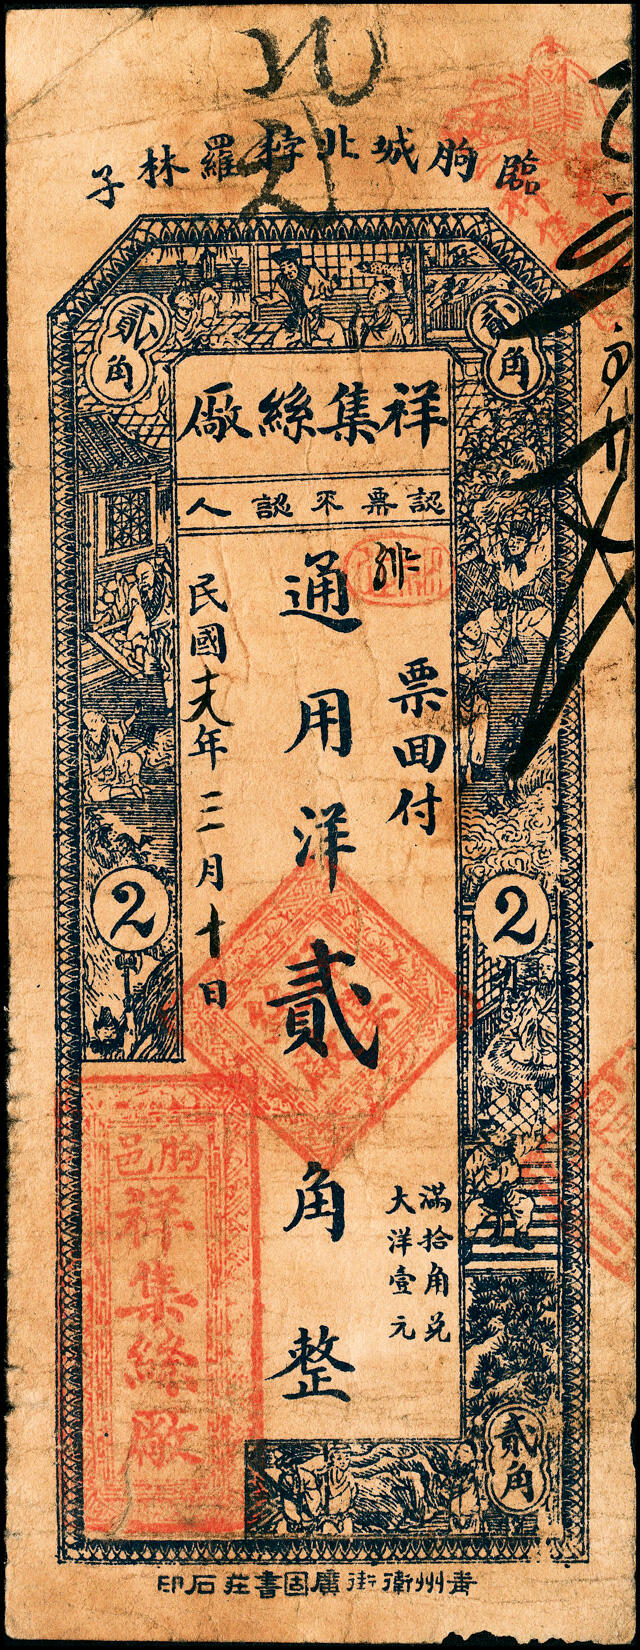 臨朐城北桲羅林子
貳角
貳角
祥集絲廠
認票不認人
票面付
通用洋貳角整
滿拾角兌
大洋壹元
民國十八年三月十日
2
2
朐邑
祥集絲廠
貳角
青州衛街廣固書莊石印